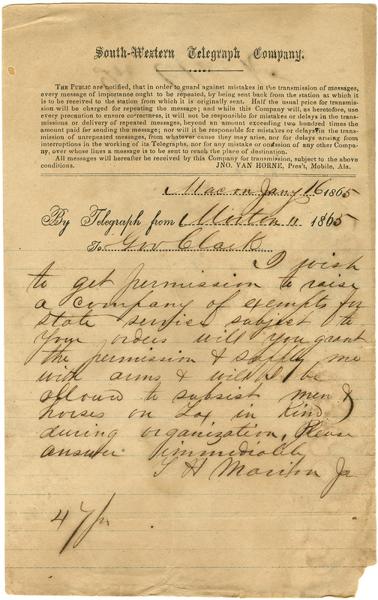 South-Western Telegraph Company.
THE PUBLIC are notified, that in order to guard against mistakes in the transmission of messages,
every message of importance ought to be repeated, by being sent back from the station at which it
is to be received to the station from which it is originally sent. Half the usual price for transmis-
sion will be charged for repeating the message; and while this Company will, as heretofore, use
every precaution to ensure correctness, it will not be responsible for mistakes or delays in the trans-
missions or delivery of repeated messages, beyond an amount exceeding two hundred times the
amount paid for sending the message; nor will it be responsible for mistakes or delays in the transmission
of unrepeated messages, from whatever cause they may arise, nor for delays arising from
interruptions in the working of its Telegraphs, nor for any mistake or omission of any other Company,
over whose lines a message is to be sent to reach the place of destination.
All messages will hereafter be received by this Company for transmission, subject to the above
conditions. JNO. VAN HORNE, Pres't, Mobile, Ala.
Macon Jany 16 1865
By Telegraph from Morton 11 1865
To Gov Clark
I wish
to get permission to raise
a company of exempts for
state service subject to
Your orders will you grant
the permission & supply me
with arms & will I be
allowed to subsist men &
horses on Tax in Kind
during organization, Please
answer immediately
S H Jr
47/